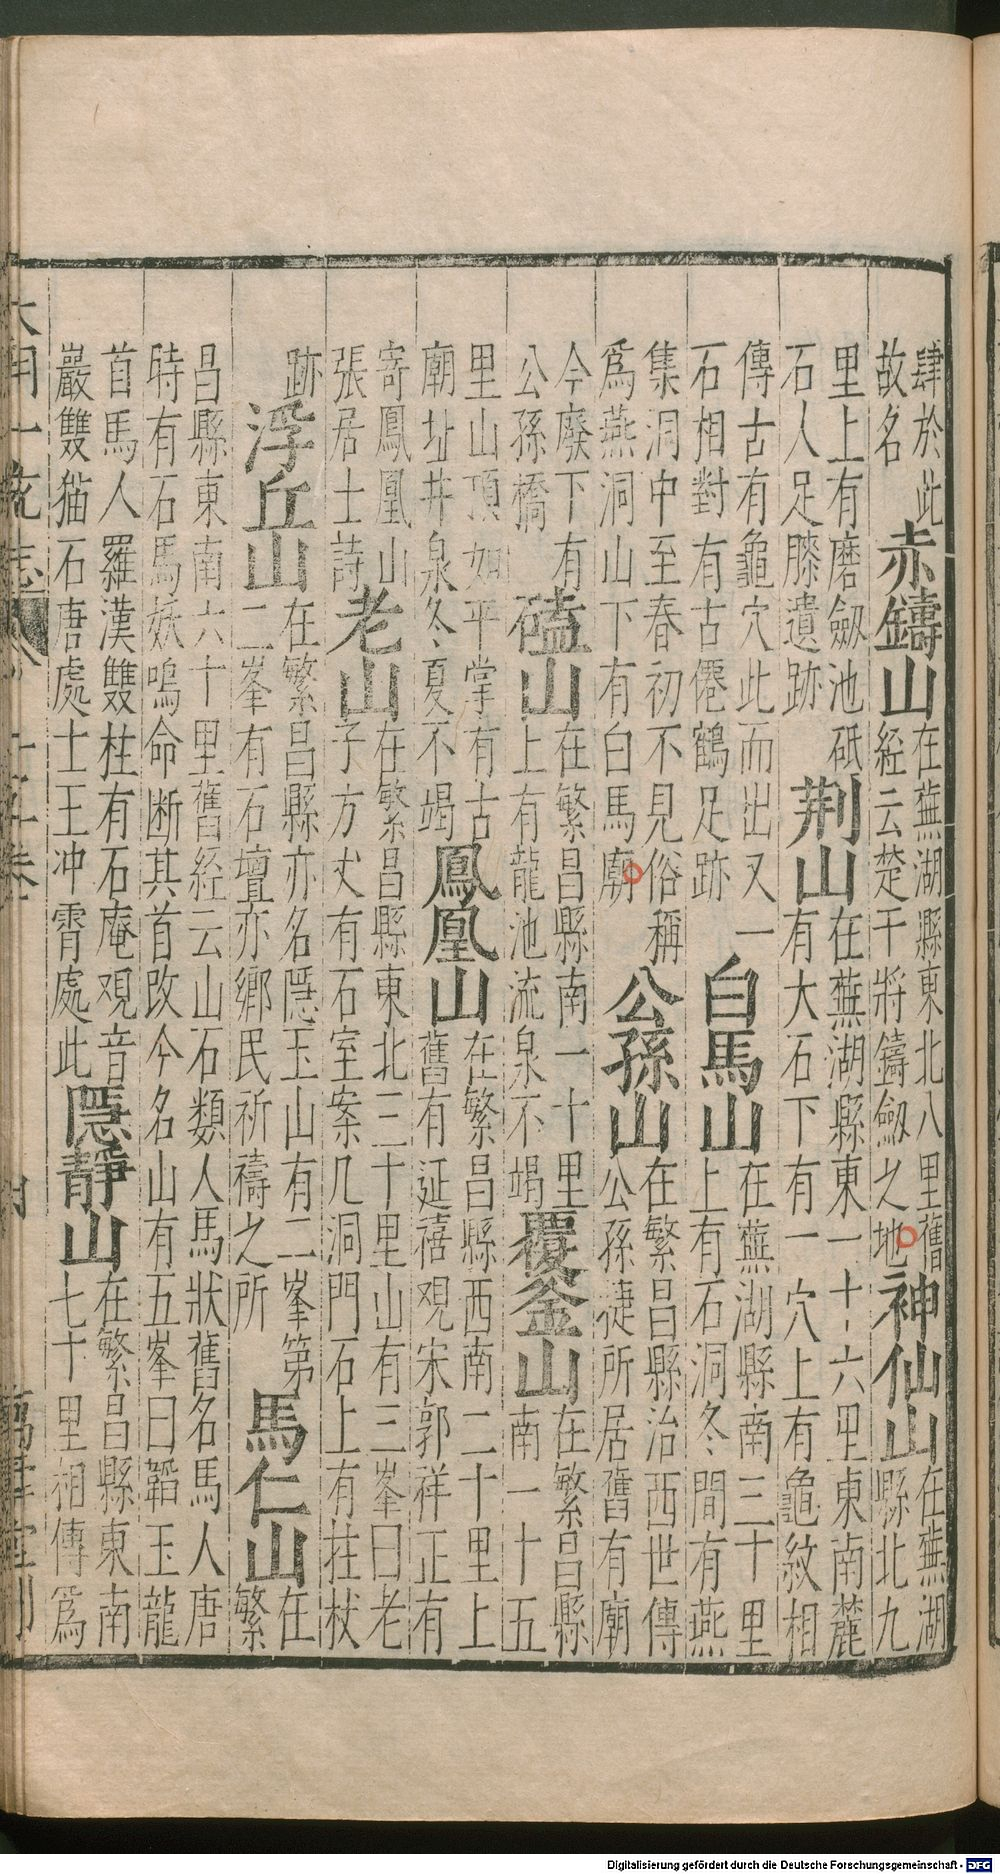 肆於此
故名
赤鑄山
在蕪湖縣東北八里舊
經云楚干將鑄劔之地
神仙山
在蕪湖
縣北九
里上有磨劔池砥
石人足膝遺跡
荆山
在蕪湖縣東一十六里東南麓
有大石下有一穴上有龜紋相
傳古有龜穴此而出又一
石相對有古僊鶴足跡
白馬山
在蕪湖縣南三十里
上有石洞冬間有燕
集洞中至春初不見俗稱
爲燕洞山下有白馬廟
公孫山
在繁昌縣治西世傳
公孫揵所居舊有廟
今廢下有
公孫橋
磕山
在繁昌縣南一十里
上有龍池流泉不竭
覆釜山
在繁昌縣
南一十五
里山頂如平掌有古
廟址井泉冬夏不竭
鳳凰山
在繁昌縣西南二十里上
舊有延禧观宋郭祥正有
寄鳳凰山
張居士詩
老山
在繁昌縣東北三十里山有三峯曰老
子方丈有石室案几洞門石上有拄杖
跡
浮丘山
在繁昌縣亦名隠玉山有二峯第
二峯有石壇亦鄉民祈禱之所
馬仁山
在
繁
昌縣東南六十里舊經云山石類人馬狀舊名馬人唐
時有石馬妖鳴命断其首改今名山有五峯曰韜玉龍
首馬人羅漢雙柱有石庵观音
巖雙猫石唐處士王冲霄處此
隠靜山
在繁昌縣東南
七十里相傳爲
大明一統志
萬壽堂刊
Digitalisierung gefördert durch die Deutsche Forschungsgemeinschaft - DFG